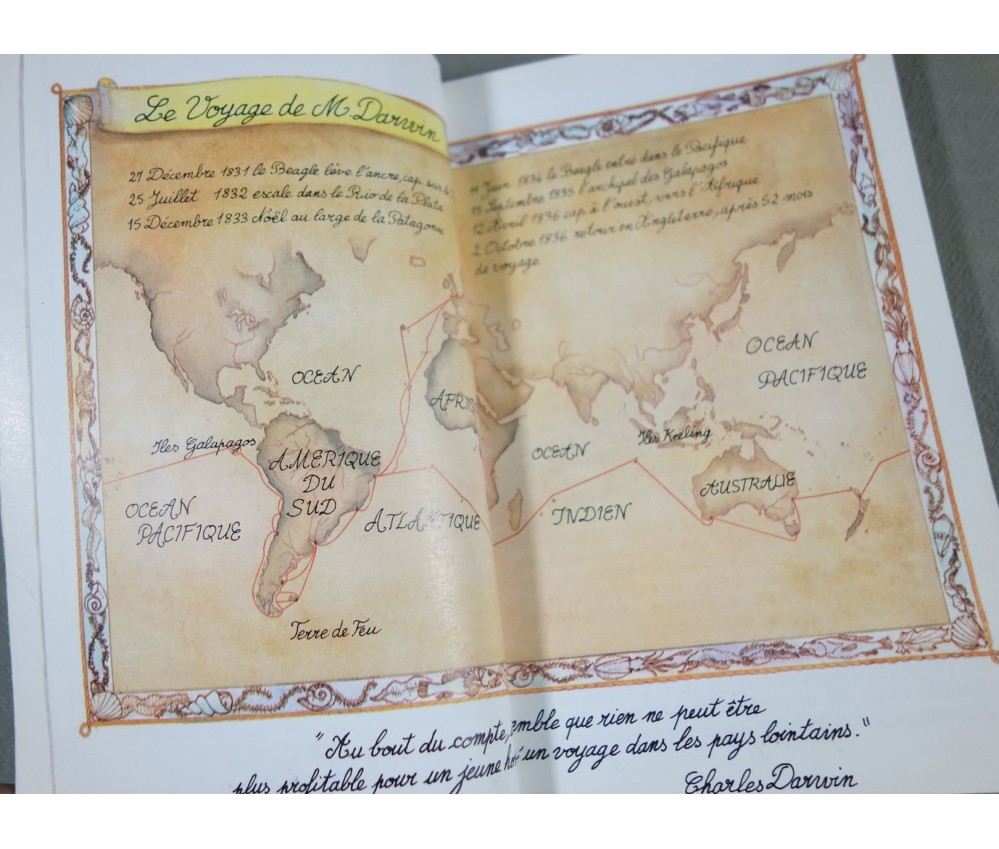 Le Voyage de M. Darwin
27 Décembre 1831 le Beagle lève l'ancre, cap sur
25 Juillet 1832 escale dans le Rio de la Plata
15 Décembre 1833 Noël au large de la Patagonie
Juin 1834 le Beagle entre dans le Pacifique
15 Septembre 1835 l'archipel des Galapagos
12 Avril 1836 cap à l'ouest, vers l'Afrique
2 Octobre 1836 retour en Angleterre, après 52 mois
de voyage
OCEAN
ATLANTIQUE
AFRIQ
OCEAN
PACIFIQUE
Iles Galapagos
AMERIQUE
DU
SUD
OCEAN
PACIFIQUE
Terre de Feu
OCEAN
INDIEN
Iles Keeling
AUSTRALIE
"Au bout du compte, emble que rien ne peut être
plus profitable pour un jeune ho un voyage dans les pays lointains."
Charles Darwin